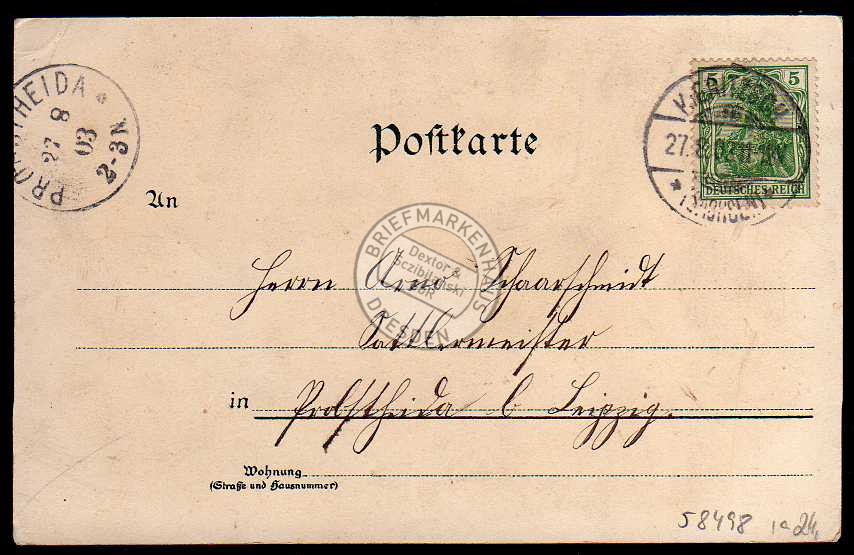 PROBSTHEIDA *
27 8
03
2-3N.
Postkarte
5 5
DEUTSCHES REICH
27.8.
(SACHSEN)
An
BRIEFMARKENHAUS
Dextor &
GbR
DRESDEN
Herrn Arno Schaarschmidt
Sattlermeister
in Probstheida b Leipzig.
Wohnung
(Straße und Hausnummer)
58498 24,